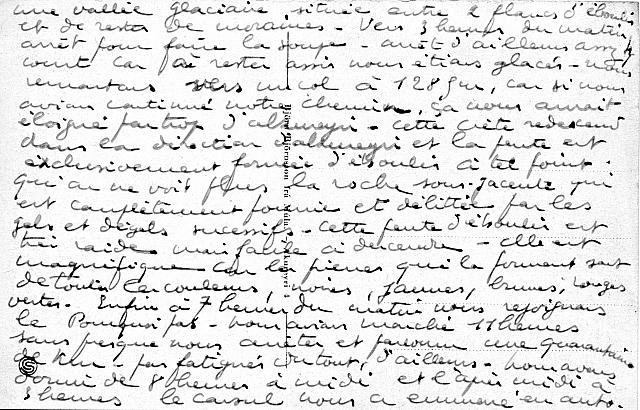 une vallée glaciaire située entre 2 flancs d'éboulis
et de restes de moraines - Vers 3 heures du matin,
arrêt pour faire la soupe - arrêt d'ailleurs assez
court car à rester assis nous étions glacés - nous
remontons vers un col à 1285m, car si nous
avions continué notre chemin, ça nous aurait
éloigné par trop d'akureyri - cette crête redescend
dans la direction d'akureyri et la pente est
exclusivement formée d'éboulis à tel point
qu'on ne voit plus la roche sous-jacente qui
est complètement fournie et délitée par les
gels et dégels successifs - cette pente d'éboulis est
très raide mais facile à descendre - elle est
magnifique car les pierres qui la forment sont
de toutes les couleurs, noires, jaunes, brunes, rouges
vertes. Enfin à 7 heures du matin nous rejoignons
le Pourquoi pas - nous avions marché 11 heures
sans presque nous arrêter et parcouru une quarantaine
de km - pas fatigués du tout, d'ailleurs - nous avons
dormi de 8 heures à midi et l'après midi à
3 heures le consul nous a emmené en auto.